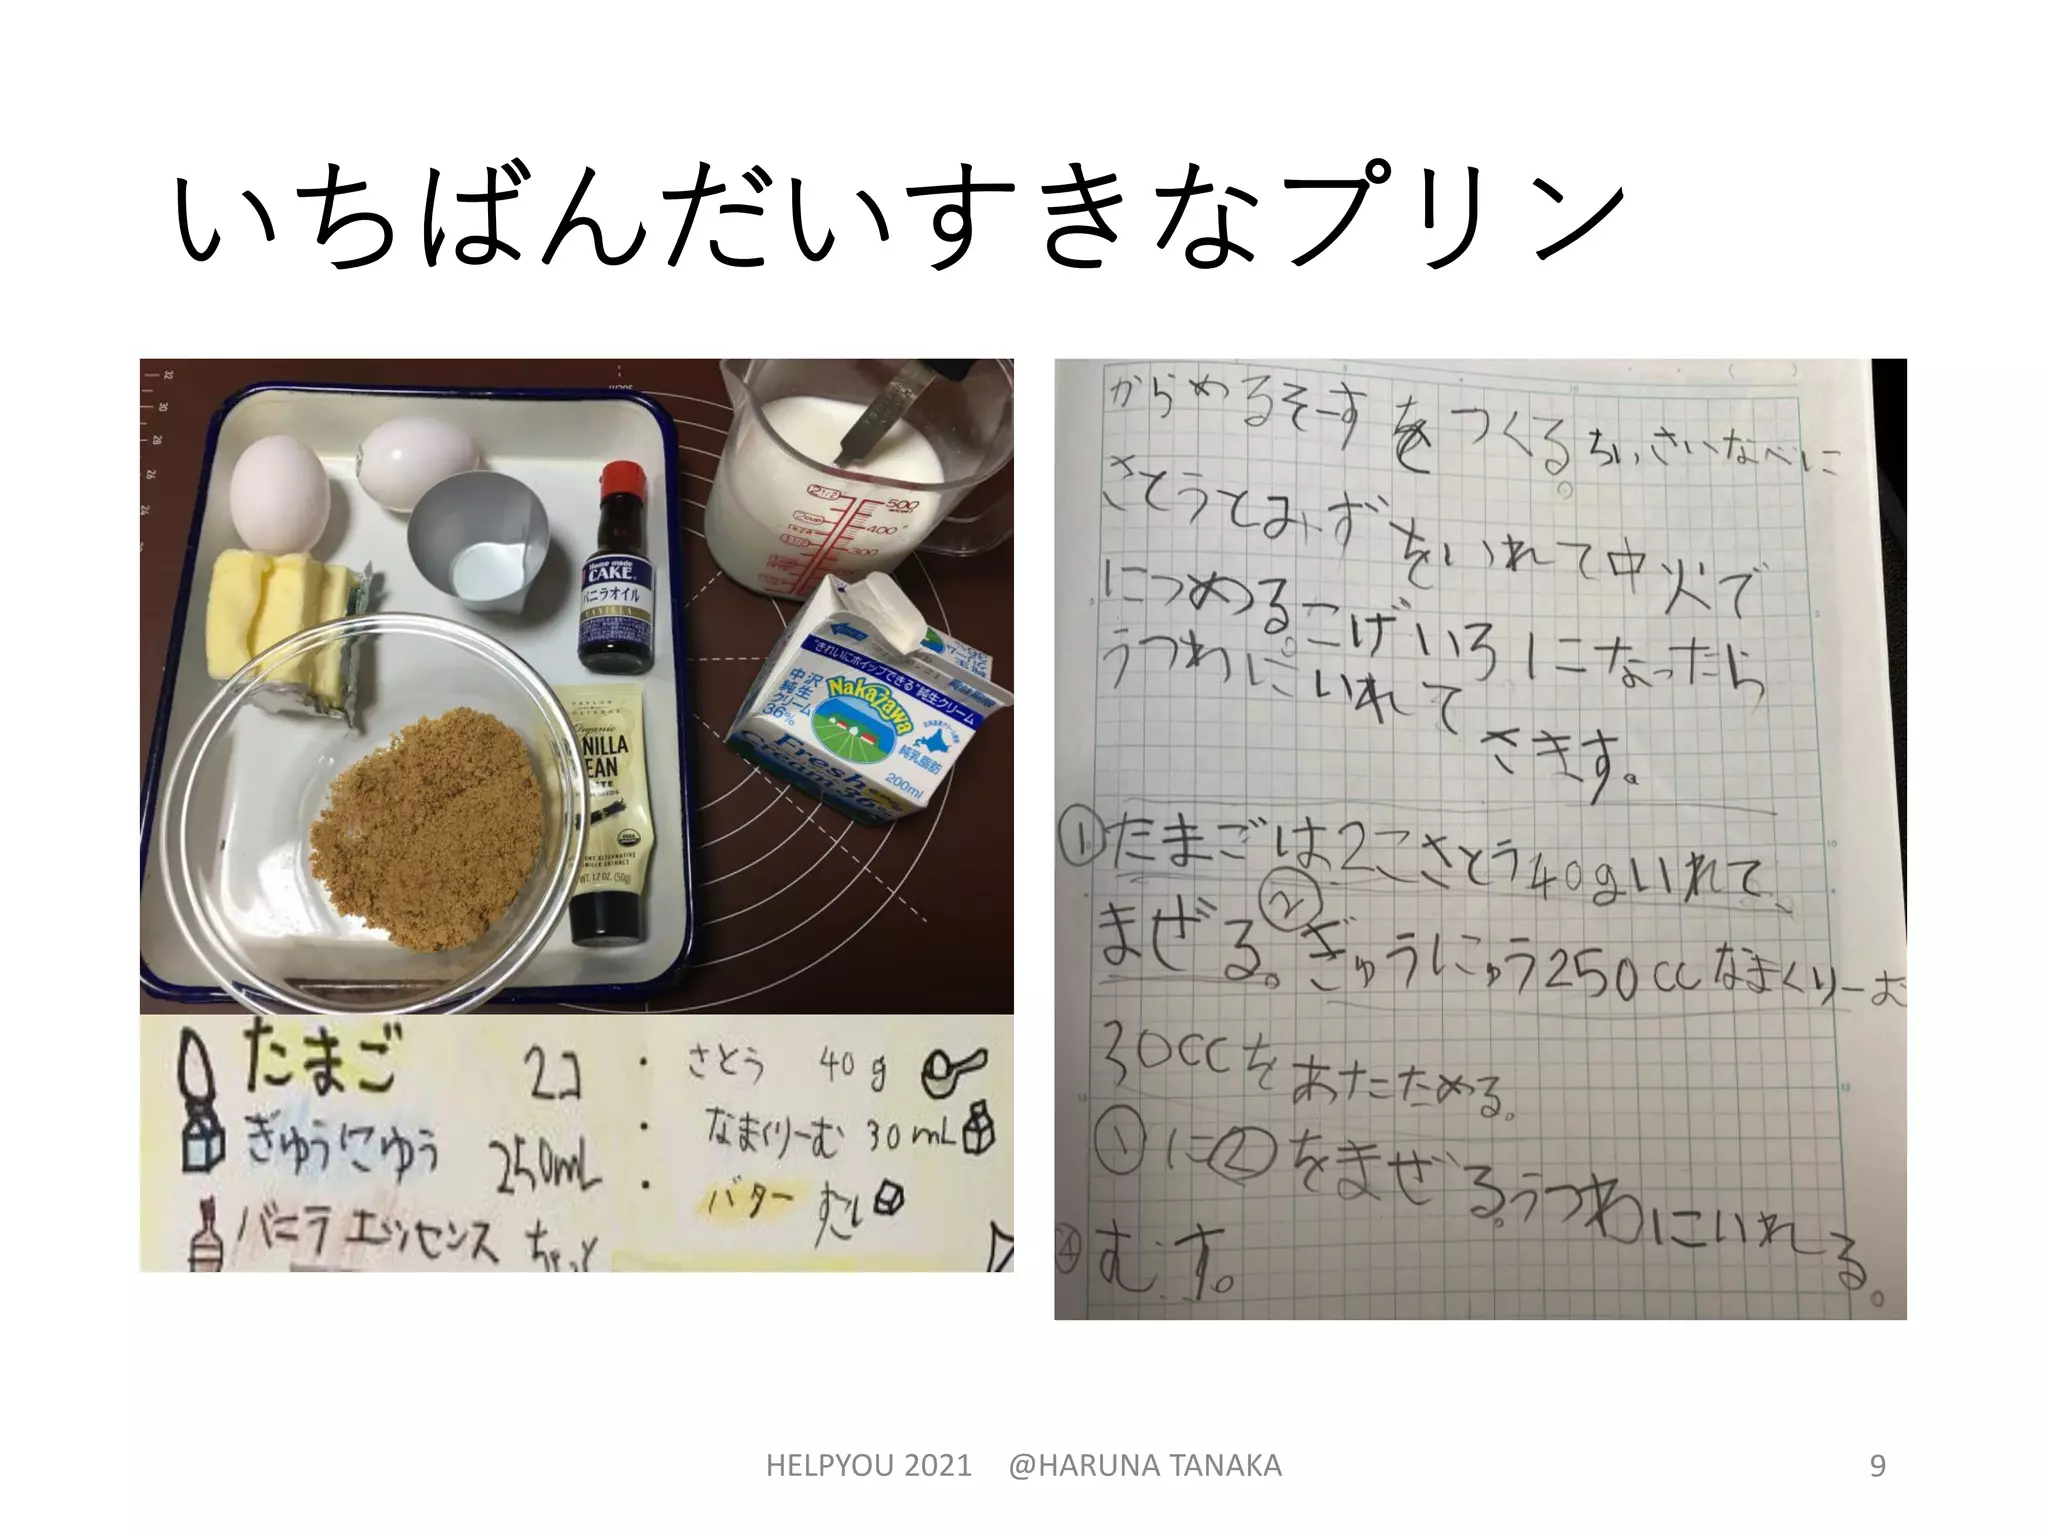 いちばんだいすきなプリン
32
30
28
26
24
21/2
500
2cup
400
11/2
300
Home made
CAKE
バニラオイル
VANILLA
"きれいにホイップできる"純生クリーム
中沢
純生
クリーム
36%
Nakazawa
純乳脂肪
Fresh
Cream 36%
200ml
Organic
VANILLA
BEAN
PASTE
WT. 1.7 OZ. (50g)
たまご 2コ ・ さとう 40g
ぎゅうにゅう 250mL ・ なまくりーむ 30mL
バニラエッセンス ちょっと ・ バター すこし
からめるそーすをつくる。ちいさいなべに
さとうとみずをいれて中火で
につめる。こげいろになったら
うつわにいれて
さます。
①たまごは2こさとう40gいれて、
まぜる。②ぎゅうにゅう250ccなまくりーむ
30ccをあたためる。
①に②をまぜる。うつわにいれる。
④むす。
HELPYOU 2021 @HARUNA TANAKA
9